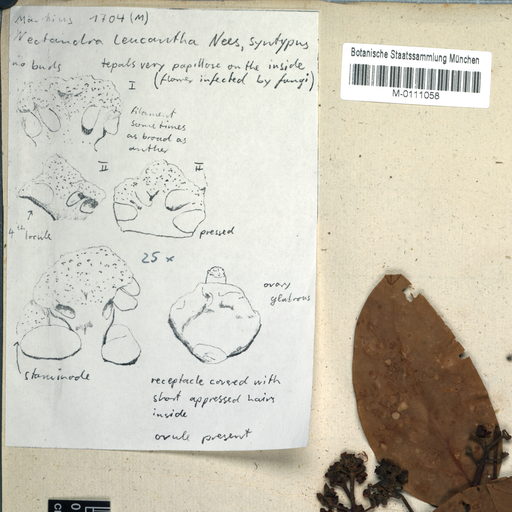 Martius 1704 (M)
Nectandra leucantha Nees, syntypus
no buds tepals very papillose on the inside
(flower infected by fungi)
I
filament
sometimes
as broad as
anther
II
II
4th locule
pressed
25 x
ovary
glabrous
staminode
receptacle covered with
short appressed hairs
inside
ovule present
Botanische Staatssammlung München
M-0111058